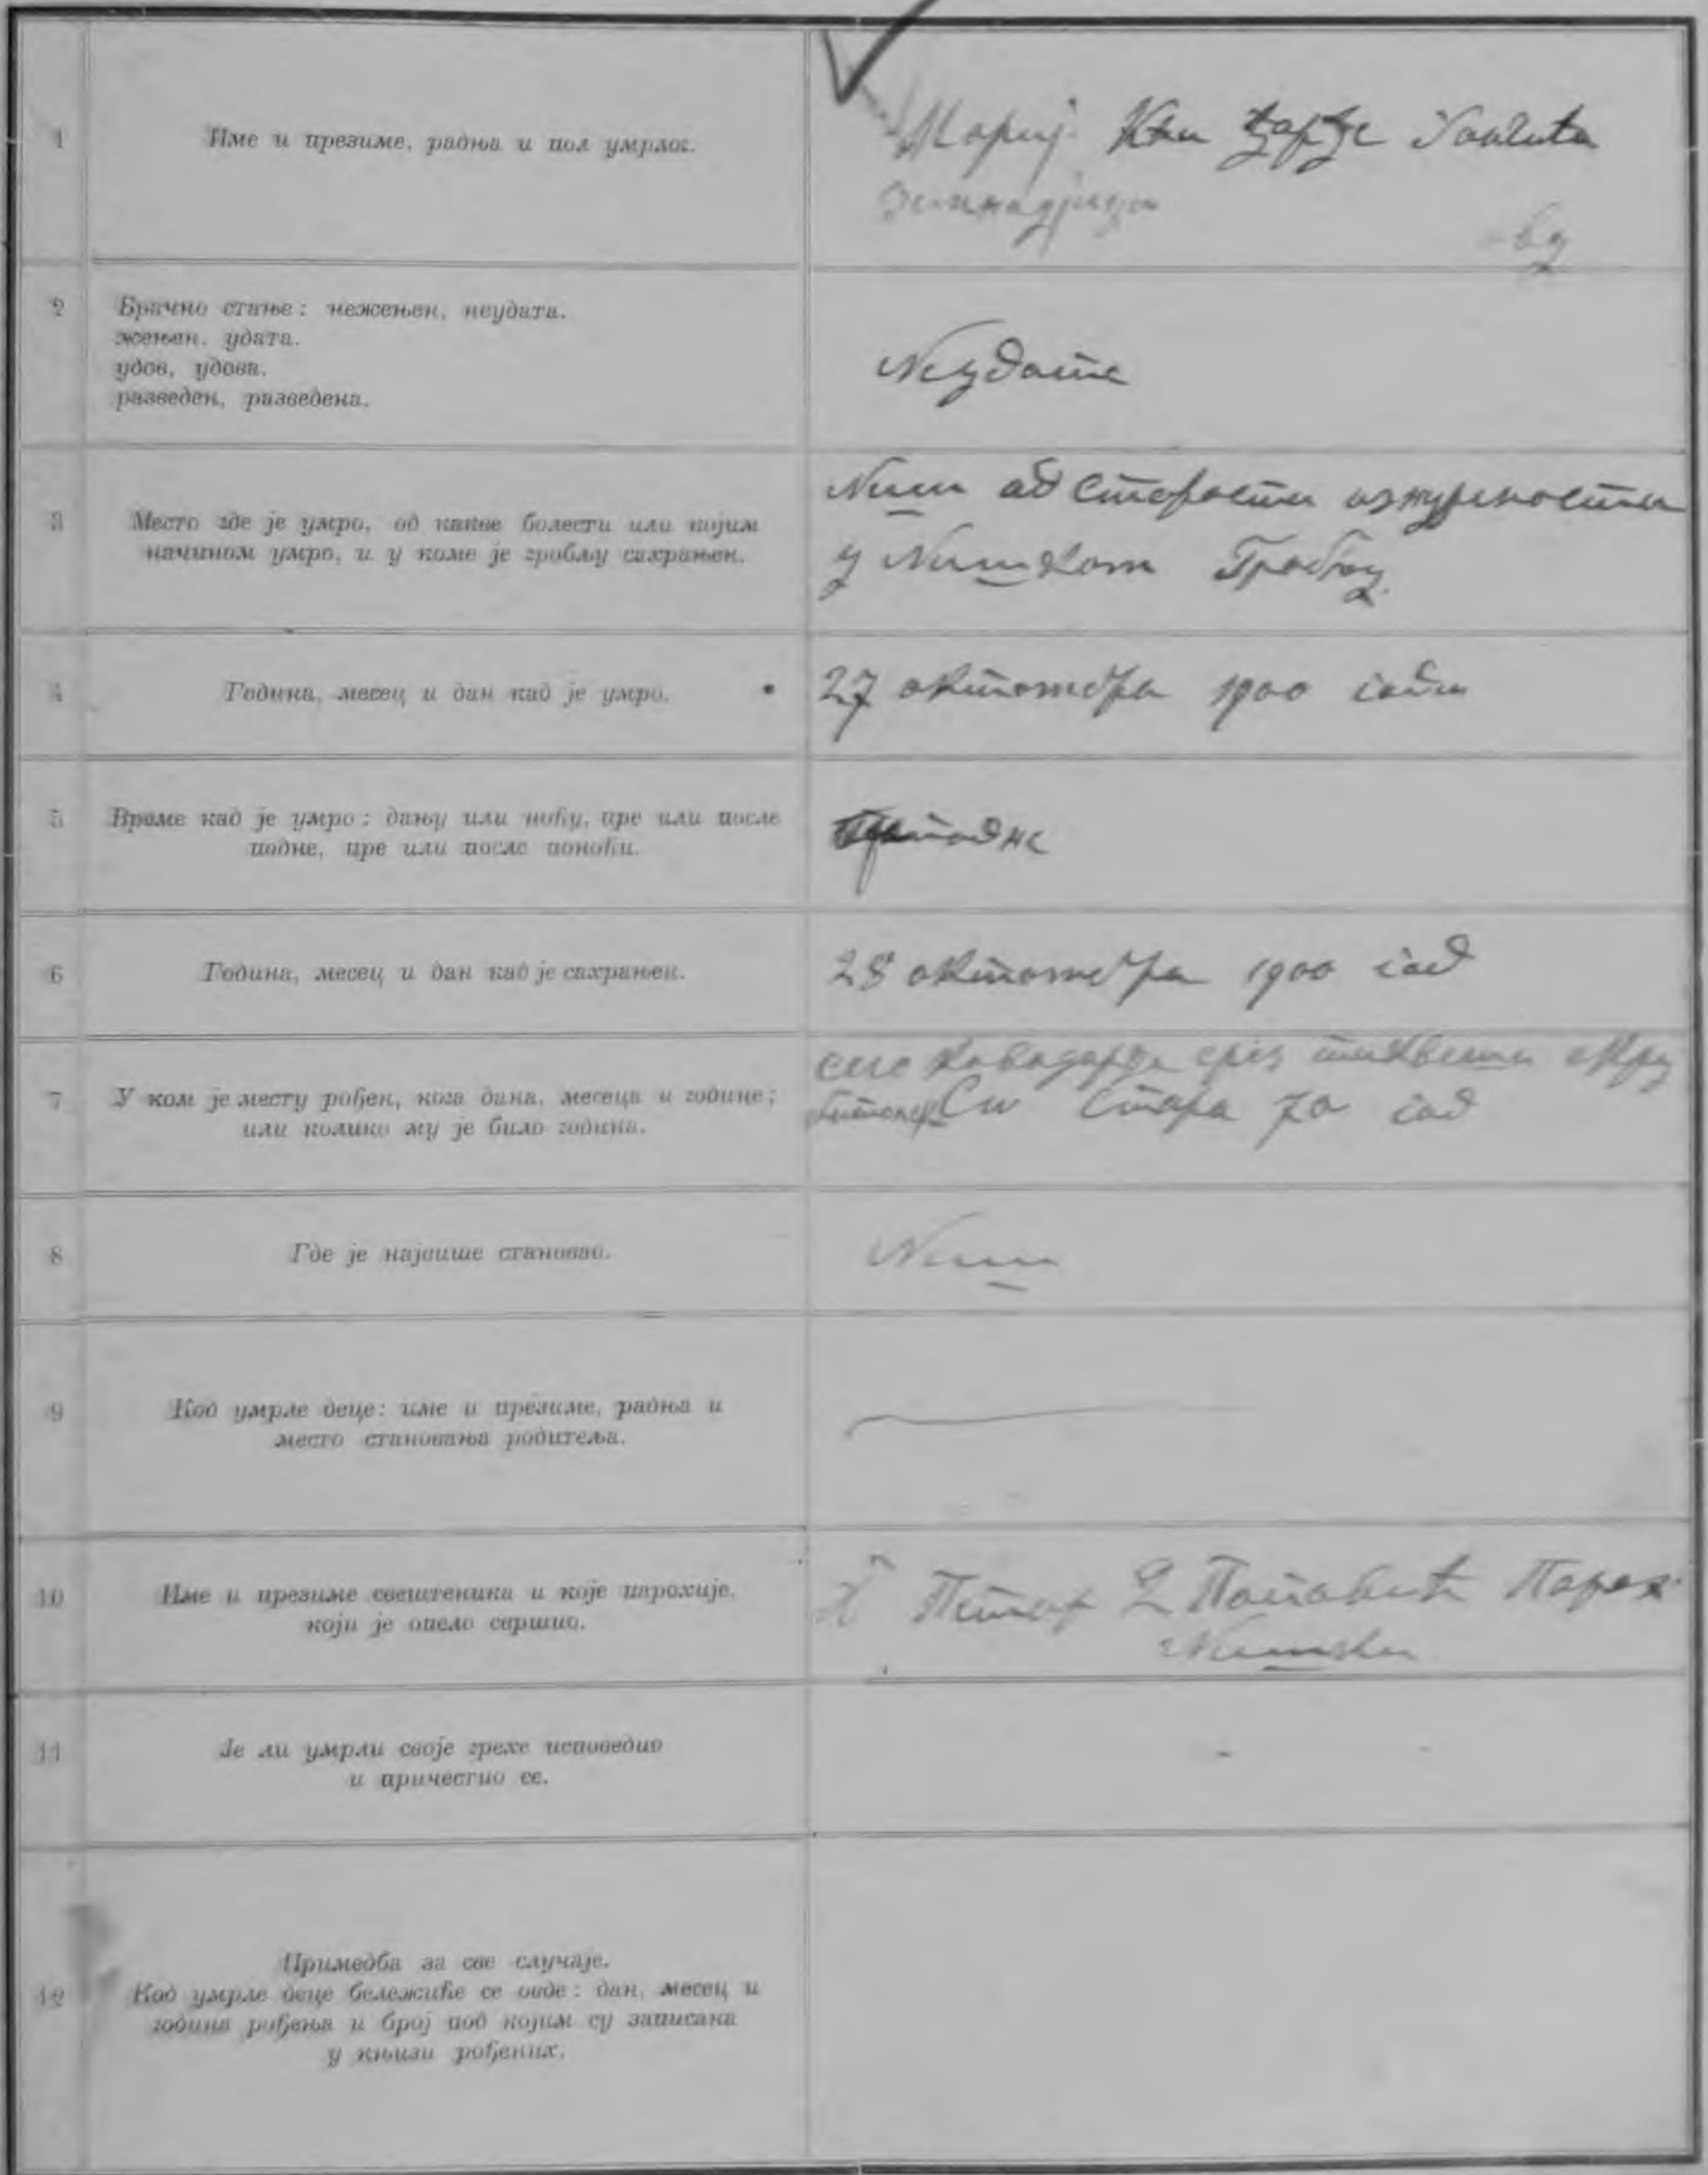 1
Име и презиме, радња и пол умрлог.
Марија Кћи Ђорђе
2
Брачно стање: нежењен, неудата.
жењен, удата.
удов, удова.
разведен, разведена.
Неудата
3
Место где је умро, од какве болести или којим
начином умро, и у коме је гробљу сахрањен.
Ниш од старости изнурености
у Нишком Гробљу
4
Година, месец и дан кад је умро.
27 октомбра 1900 год
5
Време кад је умро: дању или ноћу, пре или после
подне, пре или после поноћи.
Преподне
6
Година, месец и дан кад је сахрањен.
28 октомбра 1900 год
7
У ком је месту рођен, кога дана, месеца и године;
или колико му је било година.
село Кавадарци срез тиквеш окру
стара 70 год
8
Где је највише становао.
Ниш
9
Код умрле деце: име и презиме, радња и
место становања родитеља.
10
Име и презиме свештеника и које парохије,
који је опело свршио.
Петар Поповић Парох
Нишки
11
Је ли умрли своје грехе исповедио
и причестио се.
12
Примедба за све случаје.
Код умрле деце бележиће се овде: дан, месец и
година рођења и број под којим су записана
у књизи рођених.